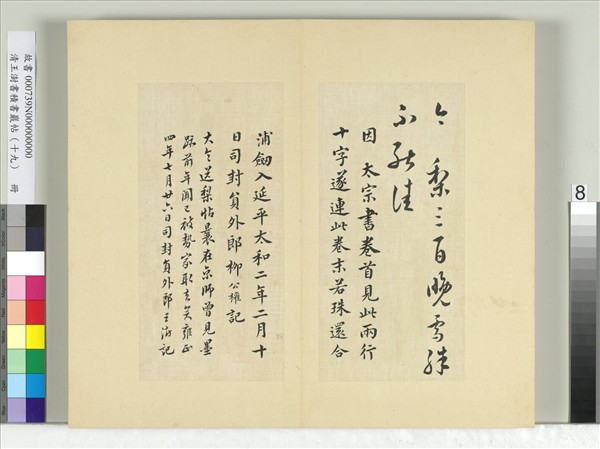 今梨三百晚雪殊
不能佳
因 太宗書卷首見此兩行
十字遂連此卷末若珠還合
浦劒入延平太和二年二月十
日司封員外郎柳公權記
大令送梨帖曩在京師曾見墨
跡前年聞已被勢家取去矣雍正
四年七月廿六日司封員外郎王澍記
故書 000739N000000000
清王澍書積書巖帖(十九) 冊
8